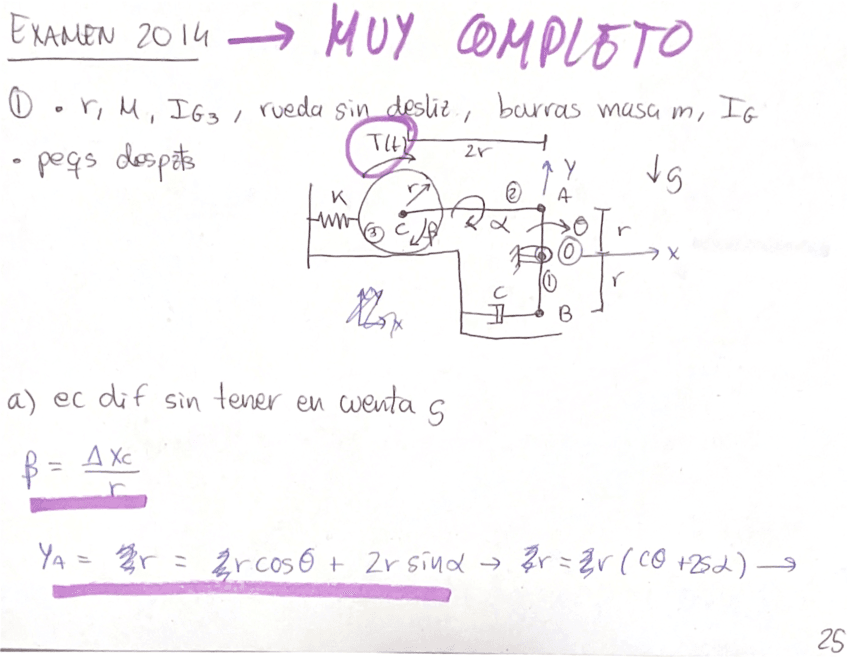 EXAMEN 2014 → MUY COMPLETO
① • r, M, IG3, rueda sin desliz., barras masa m, IG
• peqs despzts
T(t)
2r
Y
↓ g
K
r
②
A
③
C
β
α
θ
r
O
x
①
r
C
B
x
a) ec dif sin tener en cuenta g
β = ΔXc / r
YA = r = r cosθ + 2r sinα → r = r (cθ + 2sα) →
25